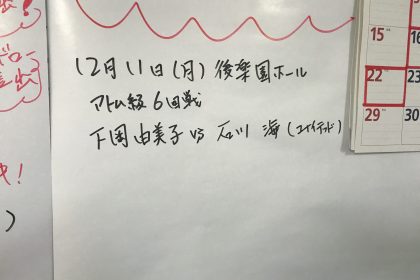 12月11日(月)後楽園ホール
アトム級6回戦
下岡由美子vs石川 海(ユナイテッド)
15
22
29
16
23
30